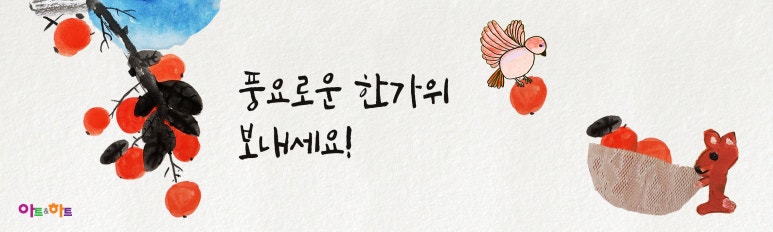 풍요로운 한가위
보내세요!
아트&하트